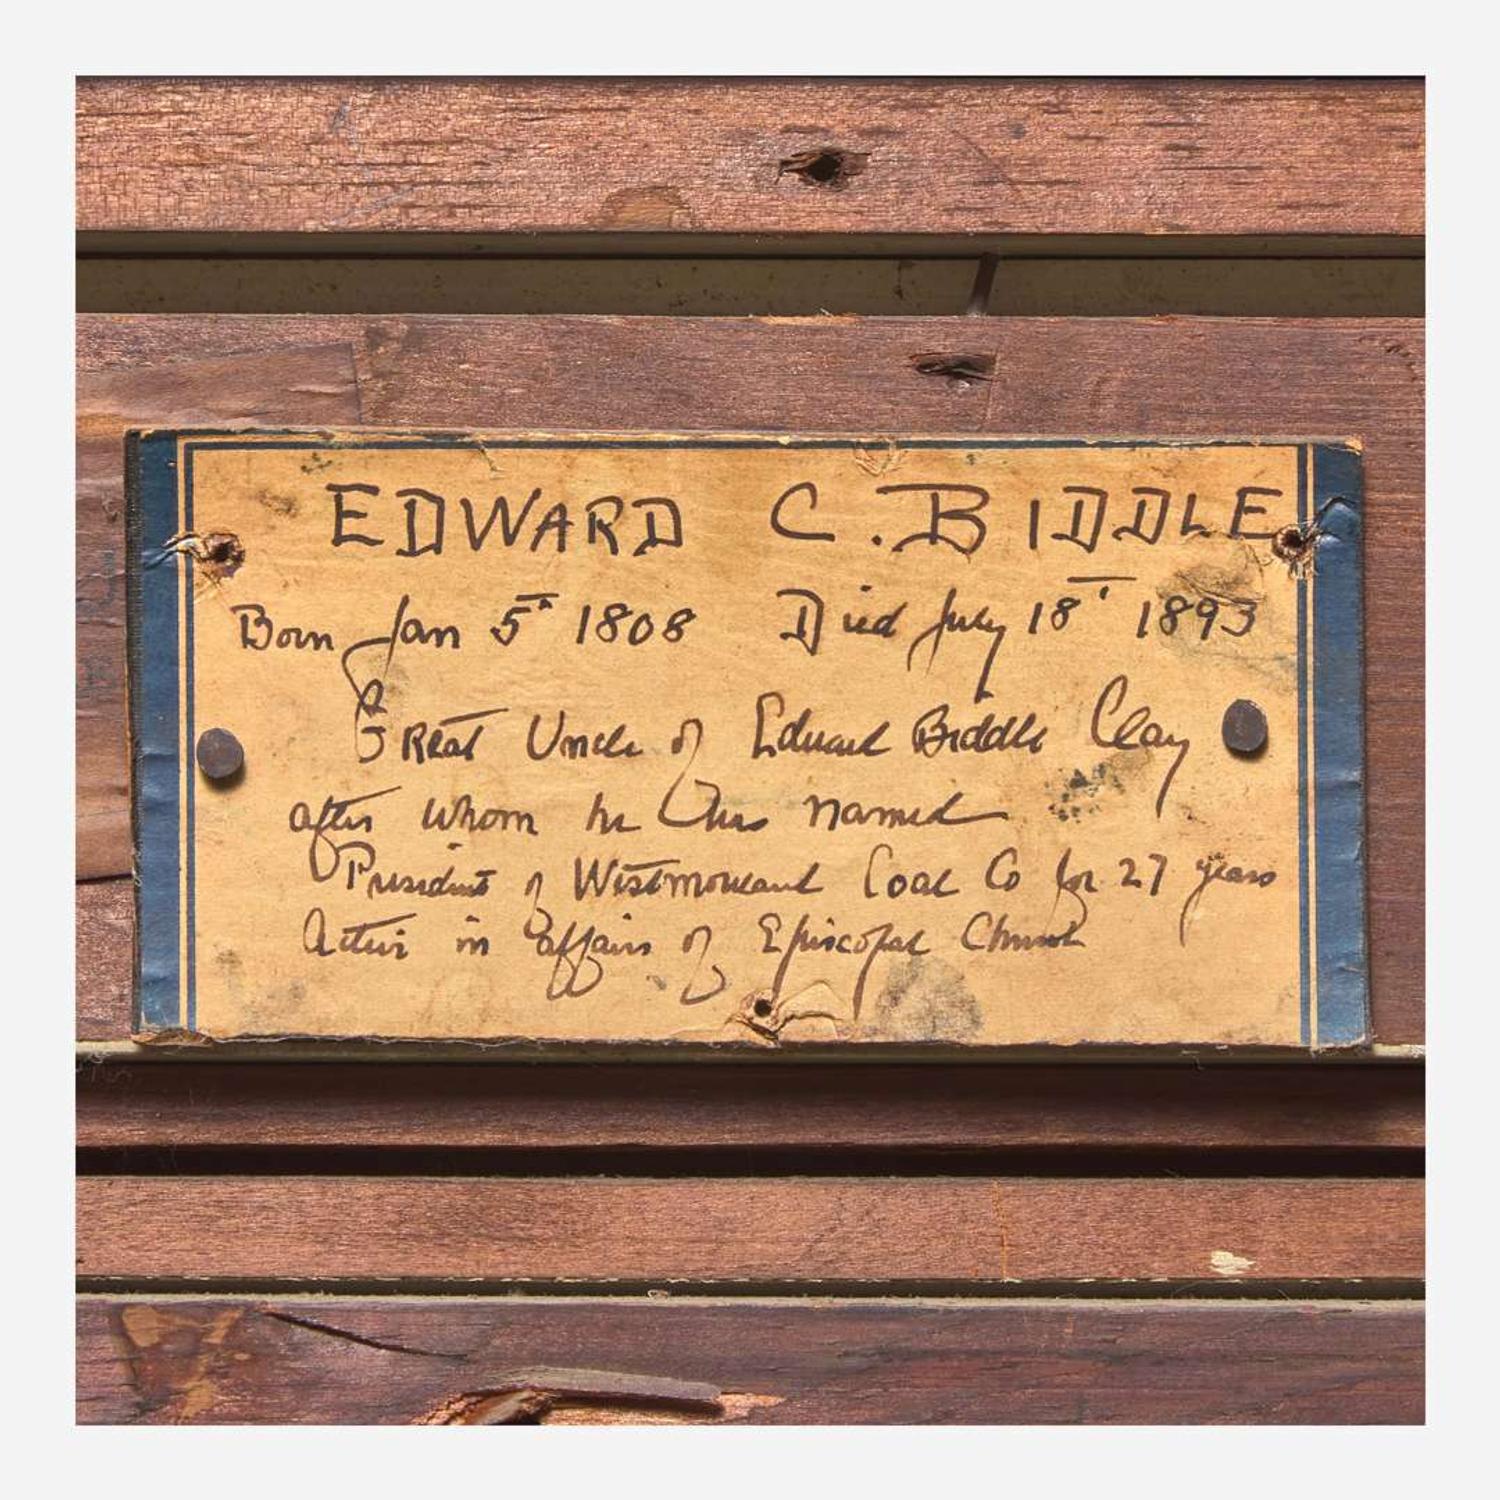 EDWARD C. BIDDLE
Born Jan 5th 1808 Died July 18th 1893
Great Uncle of Edward Biddle Clay
after whom he was named
President of Westmoreland Coal Co for 27 years
Active in affairs of Episcopal Church